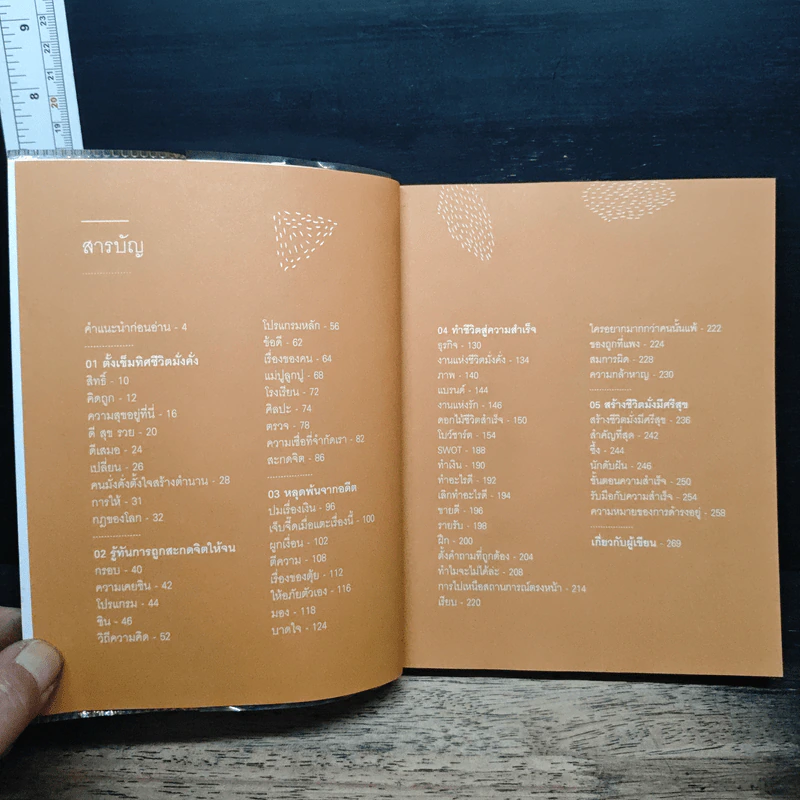 สารบัญ
คำแนะนำก่อนอ่าน - 4
01 ตั้งเข็มทิศชีวิตมั่งคั่ง
สิทธิ์ - 10
คิดถูก - 12
ความสุขอยู่ที่นี่ - 16
ดี สุข รวย - 20
ดีเสมอ - 24
เปลี่ยน - 26
คนมั่งคั่งตั้งใจสร้างตำนาน - 28
การให้ - 31
กฎของโลก - 32
02 รู้ทันการถูกสะกดจิตให้จน
กรอบ - 40
ความเคยชิน - 42
โปรแกรม - 44
ชิน - 46
วิถีความคิด - 52
โปรแกรมหลัก - 56
ข้อดี - 62
เรื่องของคน - 64
แม่ปูลูกปู - 68
โรงเรียน - 72
ศิลปะ - 74
ตรวจ - 78
ความเชื่อที่จำกัดเรา - 82
สะกดจิต - 86
03 หลุดพ้นจากอดีต
ปมเรื่องเงิน - 96
เจ็บจี๊ดเมื่อแตะเรื่องนี้ - 100
ผูกเงื่อน - 102
ตีความ - 108
เรื่องของตุ้ย - 112
ให้อภัยตัวเอง - 116
มอง - 118
บาดใจ - 124
04 ทำชีวิตสู่ความสำเร็จ
ธุรกิจ - 130
งานแห่งชีวิตมั่งคั่ง - 134
ภาพ - 140
แบรนด์ - 144
งานแห่งรัก - 146
ดอกไม้ชีวิตสำเร็จ - 150
โบว์ชาร์ต - 154
SWOT - 188
ทำเงิน - 190
ทำอะไรดี - 192
เลิกทำอะไรดี - 194
ขายดี - 196
รายรับ - 198
ฝึก - 200
ตั้งคำถามที่ถูกต้อง - 204
ทำไมจะไม่ได้ล่ะ - 208
การไปเหนือสถานการณ์ตรงหน้า - 214
เรียน - 220
ใครอยากมากกว่าคนนั้นแพ้ - 222
ของถูกที่แพง - 224
สมการผิด - 228
ความกล้าหาญ - 230
05 สร้างชีวิตมั่งมีศรีสุข
สร้างชีวิตมั่งมีศรีสุข - 236
สำคัญที่สุด - 242
ซึ้ง - 244
นักดับฝัน - 246
ขั้นตอนความสำเร็จ - 250
รับมือกับความสำเร็จ - 254
ความหมายของการดำรงอยู่ - 258
เกี่ยวกับผู้เขียน - 269
9
8
23
22
21
20
19